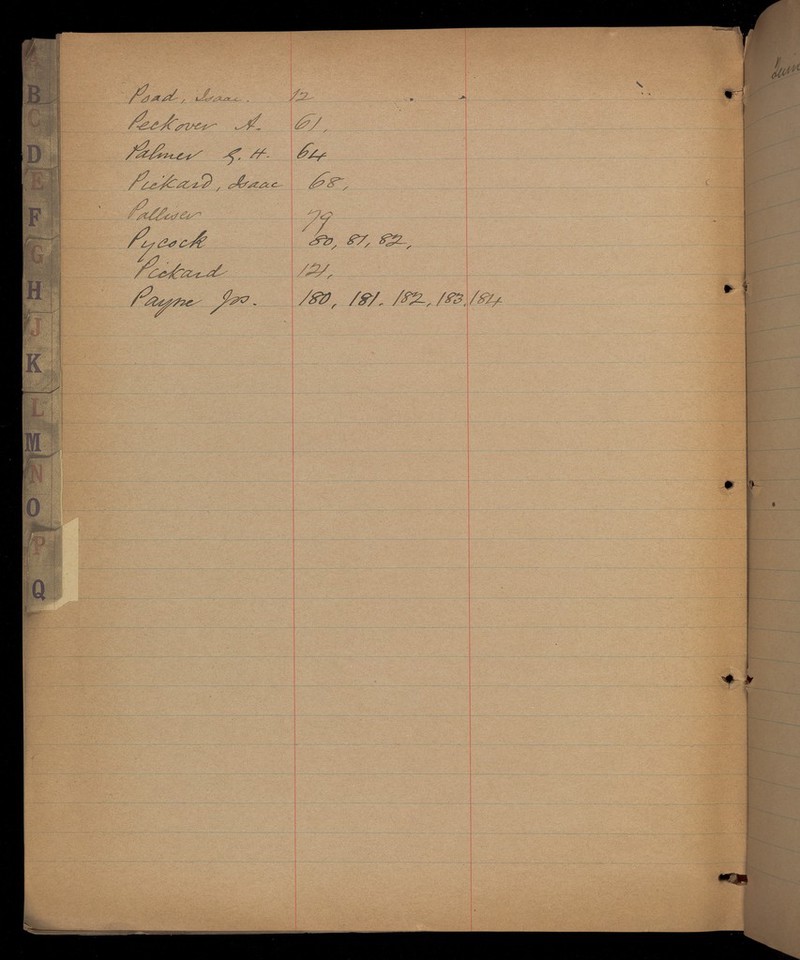 Poad, Isaac. 12
Peckover A. 61,
Palmer G. H. 64
Pickard, Isaac 68,
Palliser 79
Pycock 80, 81, 82,
Pickard 121,
Payne Jos. 180, 181. 182, 183, 184
A
B
C
D
E
F
G
H
J
K
L
M
N
O
P
Q